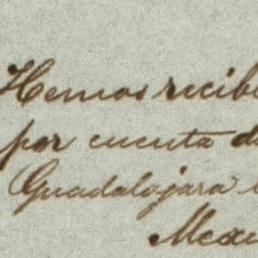 Hemos recibi
por cuenta d
Guadalajara
Mexi